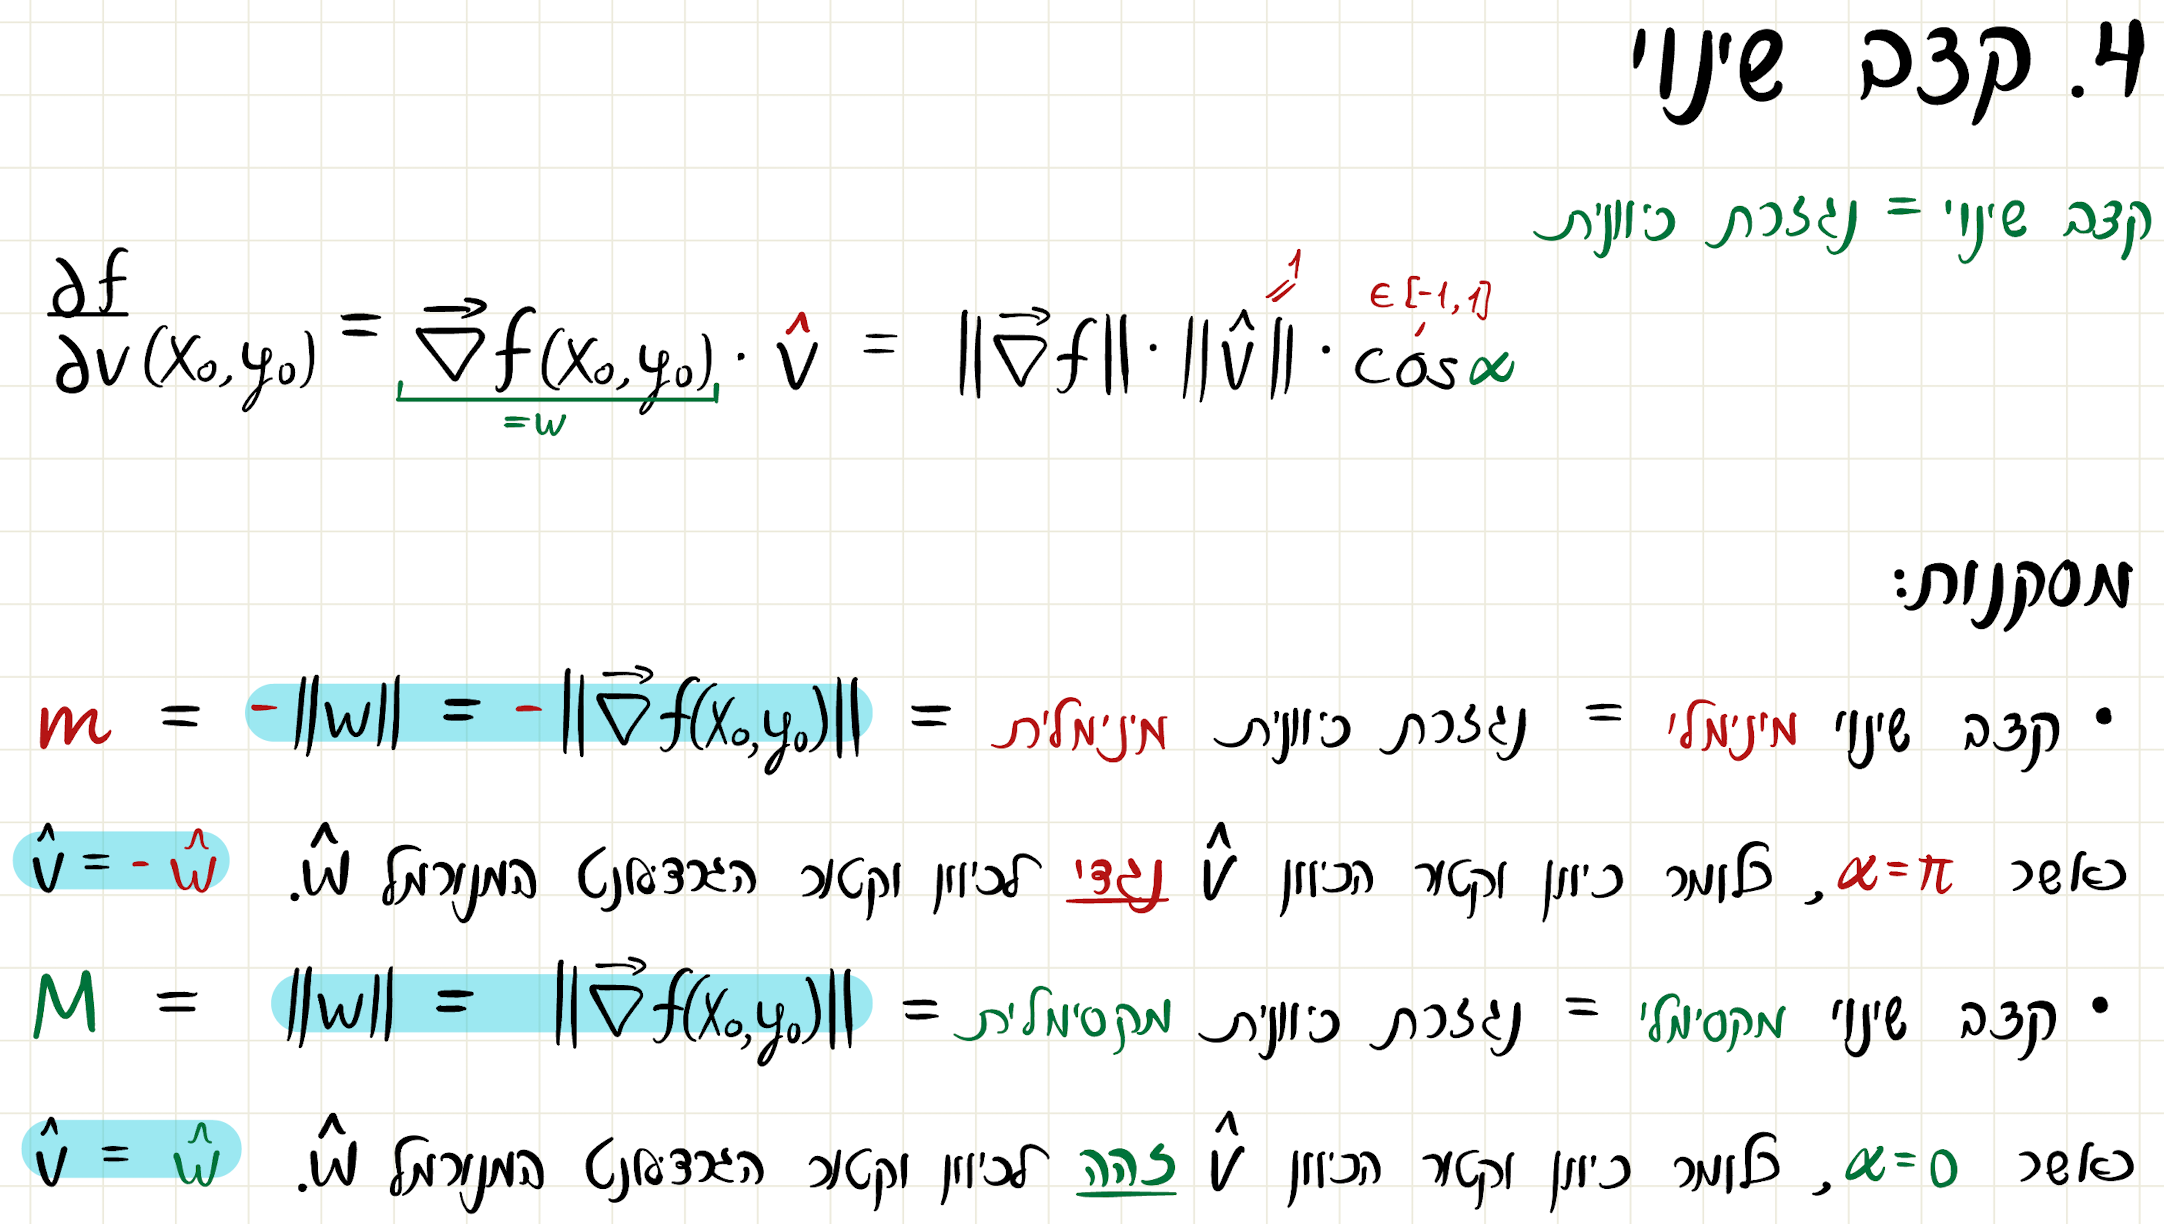 4. קצב שינוי
קצב שינוי = נגזרת כיוונית
∂f/∂v (x₀,y₀) = ∇⃗f(x₀,y₀) · v̂ = ||∇⃗f|| · ||v̂|| · cosα
1
∈[-1,1]
=w
מסקנות:
• קצב שינוי מינימלי = נגזרת כיוונית מינימלית = -||w|| = -||∇⃗f(x₀,y₀)|| = m
כאשר α=π, כלומר כיוון וקטור הכיוון v̂ נגדי לכיוון וקטור הגרדיאנט המנורמל ŵ. v̂ = -ŵ
• קצב שינוי מקסימלי = נגזרת כיוונית מקסימלית = ||w|| = ||∇⃗f(x₀,y₀)|| = M
כאשר α=0, כלומר כיוון וקטור הכיוון v̂ זהה לכיוון וקטור הגרדיאנט המנורמל ŵ. v̂ = ŵ